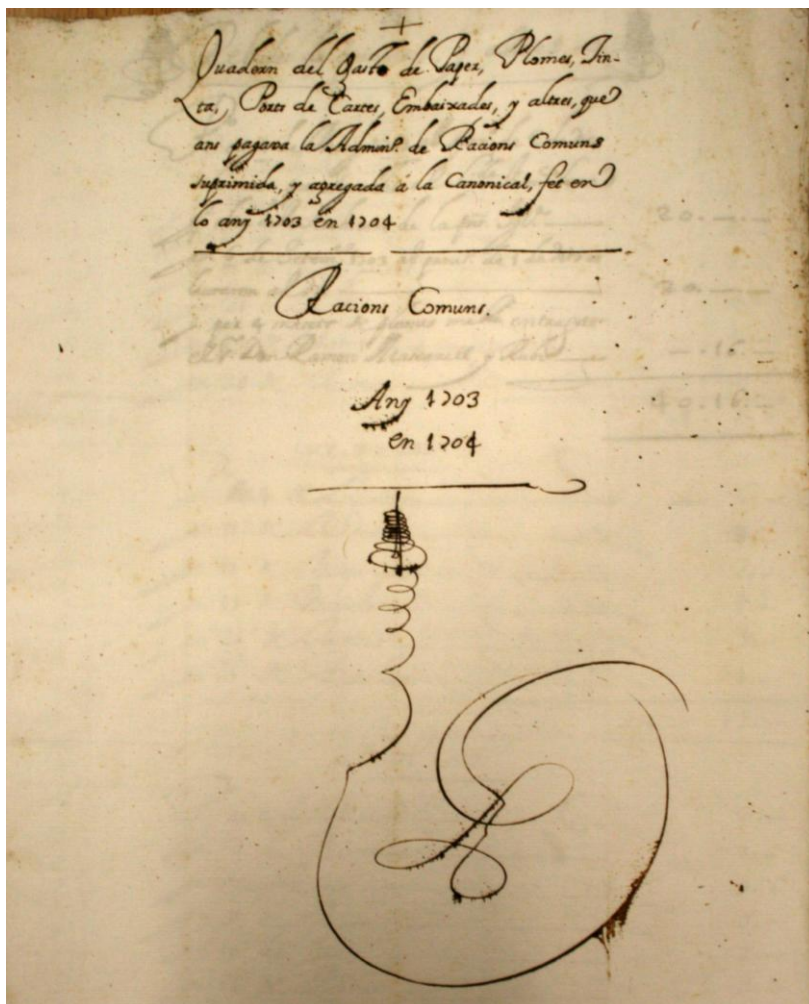 Quadern del Gasto de Paper, Plomes, Tin-
ta, Ports de Cartes, Embaixades, y altres, que
ans pagava la Admin.º de Racions Comuns
suprimida, y agregada á la Canonical, fet en
lo any 1703 en 1704
Racions Comuns.
Any 1703
en 1704